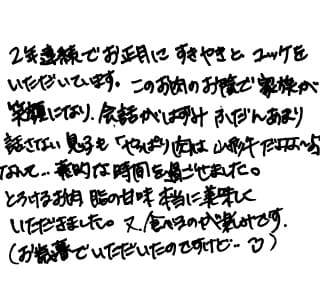 2年連続でお正月にすきやきとユッケを
いただいています。このお肉のお陰で家族が
笑顔になり、会話がはずみ ふだんあまり
話さない息子も「やっぱり肉は山形牛だよな〜」
なんて… 素的な時間を過ごせました。
とろけるお肉 脂の甘味 本当に美味しく
いただきました。又、食べるのが楽しみです。
(お歳暮でいただいたのですけど…)